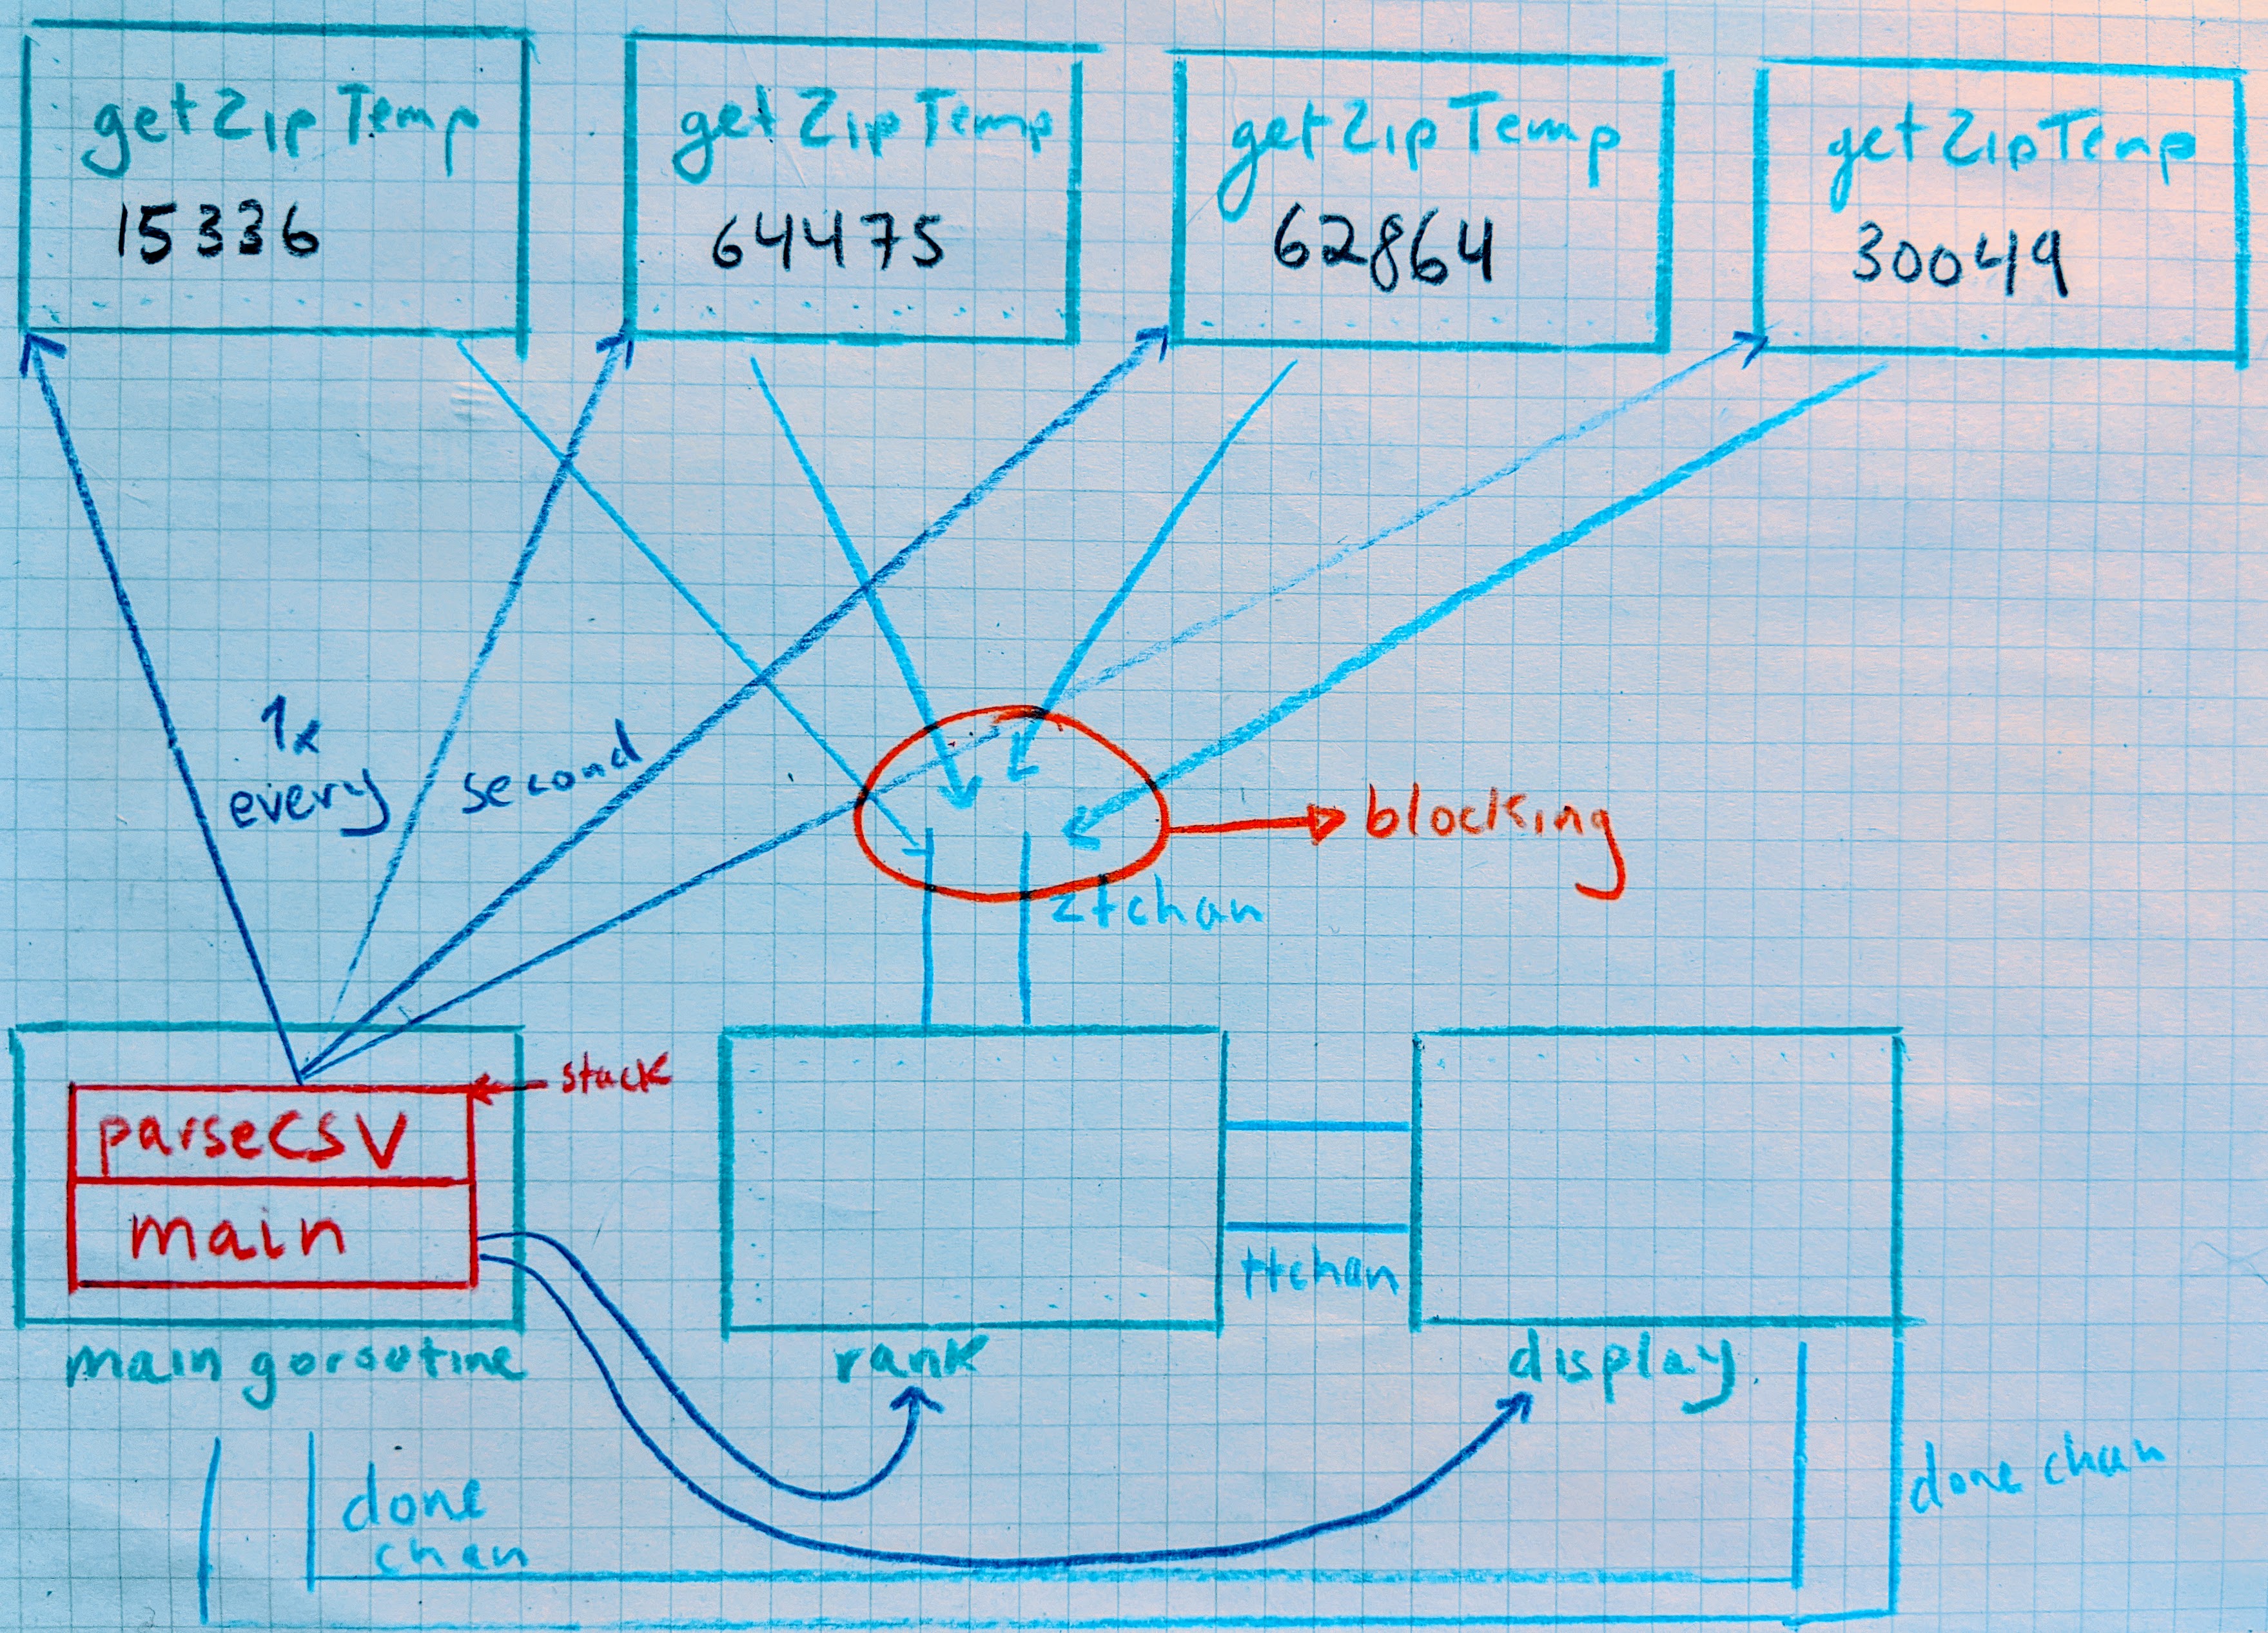 getZipTemp
15336
getZipTemp
64475
getZipTemp
62864
getZipTemp
30049
1x
every second
blocking
ztchan
stack
parseCSV
main
main goroutine
rank
ttchan
display
done
chan
done chan